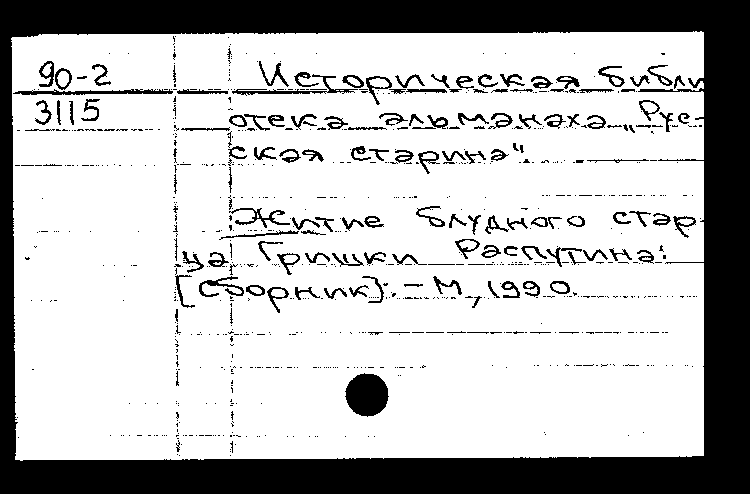 90-2 Историческая библи
3115 отека альманаха „Рус-
ская старина“.
Житие блудного стар-
ца Гришки Распутина:
[Сборник]. – М., 1990.